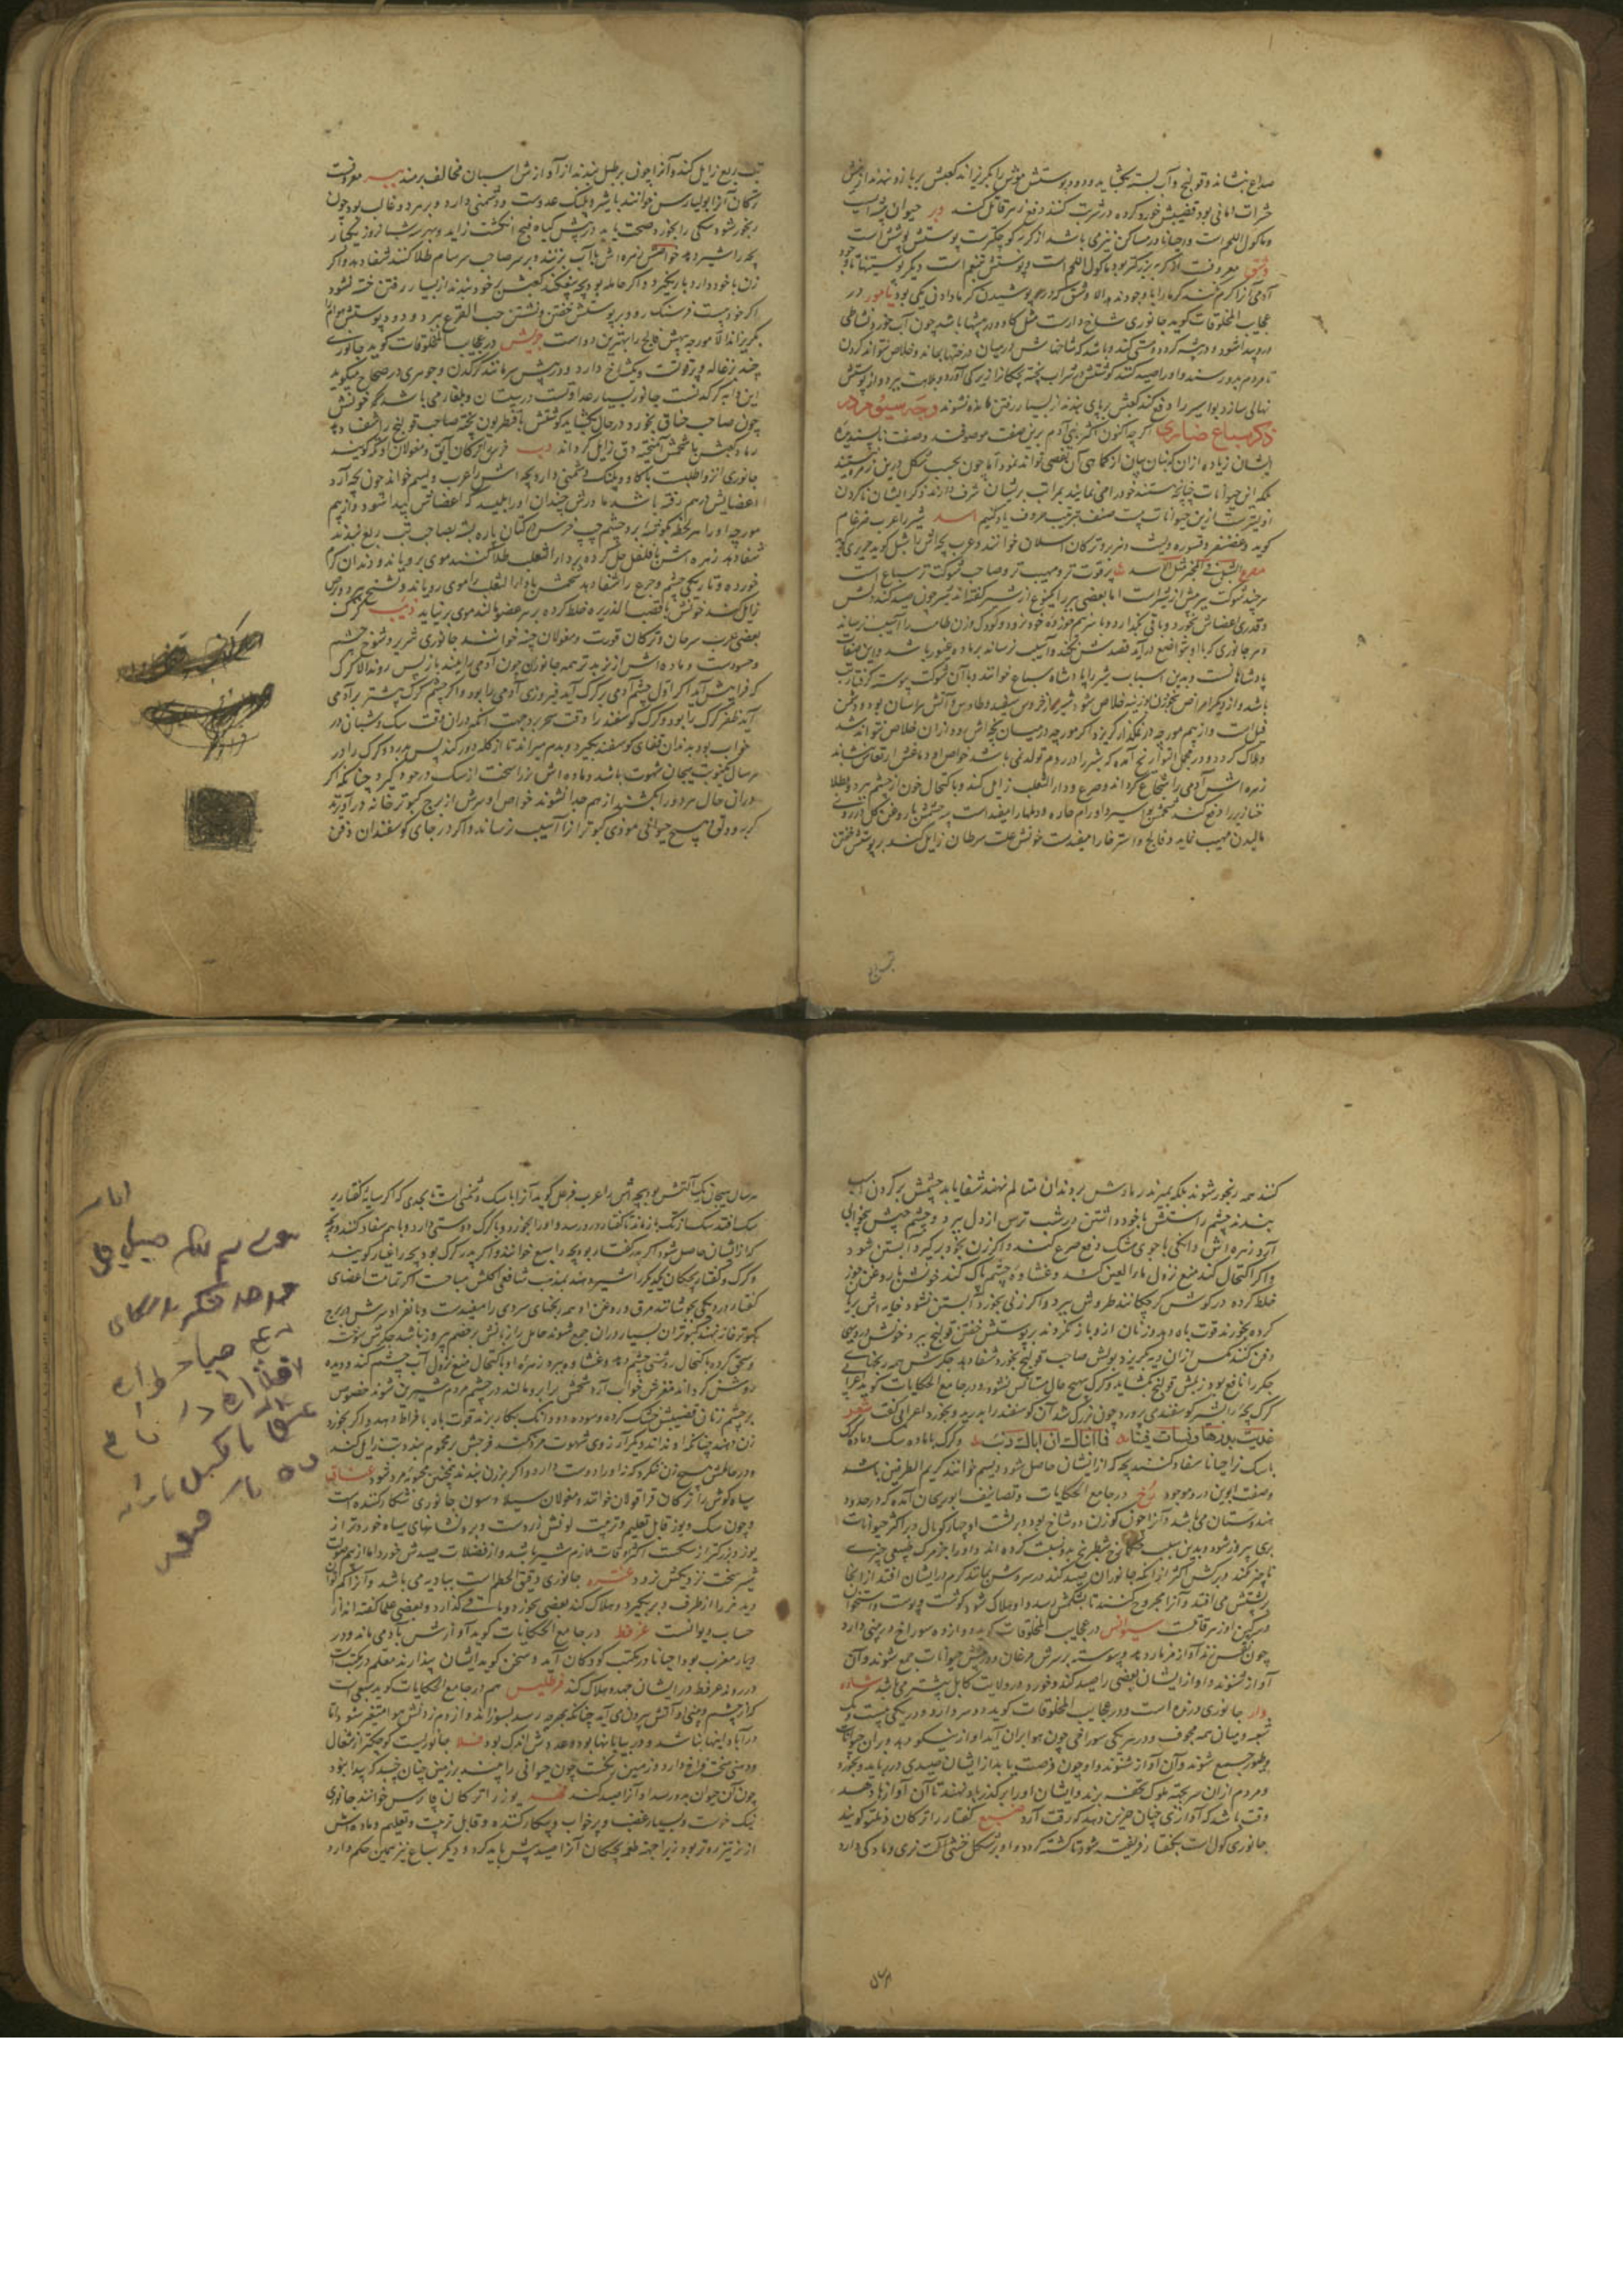 صداع بنشاند و قولنج و آب بسته بگشاید و دود پوستش موش را بگریزاند کعبش بر بازو بندند از
حشرات امانی بود قضیبش خورد کرده در شربت کنند دفع زهر قاتل کند وبر حیوان
و ماکول اللحم است و احیانا در مساکن نیز می باشد از گربه کوچکترست پوستش پوشش است
وشق معروفست از گربه بزرگتر بود ماکول اللحم است و پوستش
آدمی را گرم کنند یامور در
عجایب المخلوقات گوید جانوری شاخ دارست مثل گاو و در بیشها باشد چون آب خورد نشاطی
درو پیدا شود و در بیشه گردد و مستی کند و باشد که شاخهاش در میان درختها بماند و خلاص نتواند کردن
تا مردم بدو رسند و او را صید کنند گوشتش در شراب پخته بچکانرا زیرکی آورد و بلاهت ببرد و از پوستش
نهالی سازد بواسیر را دفع کند کعبش بر پای بندند از بسیار رفتن مانده نشوند وجه سیوم در
ذکر سباع ضاری اگرچه اکنون اکثر بنی آدم برین صفت موصوفند و صفت ناپسندیده
ایشان زیاده از آن که بنان بیان از کماهی آن بعضی تواند نمود اما چون بحسب شکل درین زمره نیستند
بلکه این حیوانات چنانچه هستند خود را می نمایند بمراتب بریشان شرف دارند ذکر ایشان ناکردن
اولیترست ازین حیوانات بیست صنف بترتیب حروف یاد کنیم اسد شیر را عرب ضرغام
گوید و غضنفر و قسوره و لیث و هزبر و ترکان ارسلان خوانند و عرب بچه اش را شبل گوید حریری گوید
مصرع الشبل فی المخبر مثل الاسد پر قوت تر و مهیب تر و صاحب شوکت تر سباع است
هر چند شوکت ببر بیش از شیرست اما بعضی ببر را نوع از شیر گفته اند شیر چون صید کند دلش
و قدری اعضاش بخورد و باقی بگذارد و با سر نیم خورده خود نرود و کودک و زن طامث را آسیب نرساند
و هر جانوری که با او بتواضع درآید قصدش نکند و آسیب نرساند بر ماده غیور باشد و این صفات
پادشاهانست و بدین اسباب شیر را پادشاه سباع خوانند و با آن شوکت پیوسته گرفتار تب
باشد و از دیگر امراض بخوردن بوزینه خلاص شود شیر از خروس سپید و طاوس و آتش هراسان بود و دشمن
فیل است و از بیم مورچه در نمکزار گریزد
و هلاک گردد و در مجمل التواریخ آمده که شیر را در روم تولد نمی باشد خواص او دماغش ارتعاش بنشاند
زهره اش آدمی را شجاع گرداند و صرع و داء الثعلب زایل کند و باکتحال خون از چشم ببرد و طلا
خنازیر را دفع کند شحمش بواسیر و اورام حاره و دملها را مفیدست پیه چشمش با روغن گل در روی
مالیدن مهیب نماید و فالج و استرخا را مفیدست خونش علت سرطان زایل کند بر پوستش خفتن
تب ربع زایل کند و آنرا چون بر طبل بندند از آوازش اسبان مخالف برمند ببر معروفست
ترکان آنرا بولبارس خوانند با شیر و پلنگ عدوست و دشمنی دارد و بر هر دو غالب بود چون
رنجور شود سگی را بخورد صحت یابد در پیش گیاه پنج انگشت زاید و بهر سه شبانروز یکبار
بچه را شیر دهد خواصش زهره اش با آب بزنند و بر سر صاحب سرسام طلا کنند شفا دهد و اگر
زن با خود دارد بار نگیرد و اگر حامله بود بچه بیفکند کعبش بر خود بندند از بسیار رفتن خسته نشود
اگر خود بیست فرسنگ رود بر پوستش خفتن و نشستن حب القرع ببرد و دود پوستش هوام
بگریزاند الا مورچه پیهش فالج را بهترین دواست حریش در عجایب المخلوقات گوید جانوری
چند بزغاله پر قوتست و یکشاخ دارد و در پیش سر مانند کرگدن و جوهری در صحاح میگوید
این دابه کرگدنست جانور بسیار عداوتست در سیستان و بلغار می باشد خونش
چون صاحب خناق بخورد در حال بگشاید گوشتش با قنطریون پخته صاحب قولنج را شفا دهد
رماد کعبش با شحمش آمیخته دق زایل گرداند دب خرس را ترکان آیق و مغولان اوتگه گویند
جانوری انزوا طلبست با گاو و پلنگ دشمنی دارد و بچه اش را عرب دیسم خواند چون بچه آرد
اعضایش درهم رفته باشد مادرش چندان او را بلیسد که اعضاش پیدا شود و از بیم
مورچه او را هر لحظه بموضعی برد چشم چپ خرس در کتان پاره بسته بصاحب تب ربع بندند
شفا دهد زهره اش با فلفل حل کرده بر داء الثعلب طلا کنند موی برویاند و دندان کرم
خورده و تاریکی چشم و جرع را شفا دهد شحمش با داء الثعلب موی رویاند و تشنج ببرد و برص
زایل کند خونش با قصب الذریره خلط کرده بر هر عضو مالند موی بر نیاید ذیب گرگ
بعضی عرب سرحان و ترکان قورت و مغولان چنه خوانند جانوری شریر و شوخ چشم
و حسودست و ماده اش از نر بدتر همه جانوران چون آدمی را ببیند باز پس روند الا گرگ
که فرا پیش آید اگر اول چشم آدمی بر گرگ آید فیروزی آدمی را بود و اگر چشم گرگ پیشتر بر آدمی
آید ظفر گرگ را بود و گرگ گوسفند را وقت سحر برد جهت آنکه در آن وقت سگ و شبان در
خواب بود بدندان قفای گوسفند بگیرد و بدم میراند تا از گله دور کند پس ببرد و گرگ را در
هر سال یکنوبت هیجان شهوت باشد و ماده اش نر را سخت از سگ در خود گیرد چنانکه اگر
در آن حال هر دو را بکشند از هم جدا نشوند خواص او سرش از برج کبوترخانه در آویزند
گربه و دق و هیچ حیوانی موذی کبوترانرا آسیب نرساند و اگر در جای گوسفندان دفن
کنند همه رنجور شوند بلکه بمیرند رمادش بر دندان متالم نهند شفا یابد چشمش بر گردن اسب
بندند چشم راستش با خود داشتن در شب ترس از دل ببرد و چشم چپش بیخوابی
آرد زهره اش دانگی با جوی مشک دفع صرع کند و اگر زن بخود برگیرد آبستن شود
و اگر اکتحال کند منع نزول ما را العین کند و غشاوه چشم پاک کند خونش با روغن جوز
خلط کرده در گوش کر چکانند طروش ببرد و اگر زنی بخورد آبستن نشود خایه اش بریان
کرده بخورند قوت باه دهد و زنان ازو باز نگردند بر پوستش خفتن قولنج ببرد خونش در دیهی
دفن کنند مگس از آن دیه بگریزد بولش صاحب قولنج بخورد شفا دهد جگرش همه رنجهای
جگر را نافع بود زبلش قولنج بگشاید و گرگ بهیچ حال مستانس نشود و در جامع الحکایات گوید اعرابی
گرگ بچه را بشیر گوسفندی بپرورد چون بزرگ شد آن گوسفند را بدرید و بخورد اعرابی گفت شعر
غذیت بدرها و نشات فینا فما انباک ان اباک ذیب و گرگ با ماده سگ و ماده گرگ
با سگ نر احیانا سفاد کنند بچه که از ایشان حاصل شود دیسم خوانند کریم الطرفین باشد
وصفت ابوین درو موجود رخ در جامع الحکایات و تصانیف ابو ریحان آمده که در حدود
هندوستان می باشد و آنرا چون گوزن دو شاخ بود و بر پشت او چهار کوهان و بر اکثر حیوانات
بری پیروز شود و بدین سبب رخ شطرنج بدو نسبت کرده اند و او را جز مرگ طبیعی چیزی
ناچیز نکند و مرگش اکثر از آنکه جانوران صید کند در سروش بمانند کرم در ایشان افتد از آنجا
بر پشتش می افتد و آنرا مجروح کنند تا بشکمش رسد و او هلاک شود گوشت و پوست و استخوان
و سرگین او زهر قاتلست سیرانس در عجایب المخلوقات گوید دوازده سوراخ در بینی دارد
چون نفس زند آواز مزمار دهد پیوسته برسرش مرغان و در پیش حیوانات جمع شوند و آن
آواز شنوند و او از ایشان بعضی را صید کند و خورد در ولایت کابل بیشتر می باشد شاده
وار جانوری درنده است و در عجایب المخلوقات گوید دو سر دارد و در یکی بیست و یک
شعبه و میان همه مجوف و در هر یکی سوراخی چون هوا بر آن آید آواز نیکو دهد بر آن حیوانات
و طیور جمع شوند و آن آواز شنوند و او چون فرصت یابد از ایشان صیدی در رباید و بخورد
و مردم از آن سر بجهت ملوک تحفه برند و ایشان او را بر گذر باد نهند تا آن آوازها دهد
وقت باشد که آوازی چنان حزین دهد که رقت آرد ضبع کفتار را ترکان ذلتو گویند
جانوری گولست بگفتار فریفته شود تا گشته گردد و او بر شکل خنثی آلت نری و مادگی دارد
هر سال بیجان یک آلتش بود بچه اش را عرب فرعل گوید آنرا با سگ دشمنی است تا بحدی که اگر سایه کفتار بر
سگ افتد سگ از تگ باز ماند تا کفتار درو رسد و او را بخورد و با گرگ دوستی دارد و با هم سفاد کنند و بچه
که از ایشان حاصل شود اگر پدر کفتار بود بچه را سمع خوانند و اگر پدر گرگ بود بچه را غبار گویند
و گرگ و کفتار بچگان یکدیگر را شیر دهند بمذهب شافعی اکلش مباحست اگر تمامت اعضای
کفتار در دیگی بجوشانند مرق و روغن او همه رنجهای سردی را مفیدست و بانفراد سرش در برج
کبوترخانه نهند کبوتران بسیار در آن جمع شوند حامل را زبانش بر خصم پیروز باشد جگرش سوخته
و سحق کرده باکتحال روشنی چشم دهد و غشاوه ببرد زهره او باکتحال منع نزول آب چشم کند و دیده
روشن گرداند مغزش خواب آرد شحمش را بر ابرو مالند در چشم مردم شیرین شوند خصوص
بر چشم زنان قضیبش خشک کرده و سوده دو دانگ بکار برند قوت باه بافراط دهد و اگر بخورد
زن دهند چنانکه او نداند دیگر آرزوی شهوت مرد نکند فرجش بر محموم بندد تب زایل کند
و در حاملش هیچ زن ننگرد که نه او را دوست دارد و اگر بر زن بندند همچنین محبوبه مرد شود عناق
سیاه گوش را ترکان قراقولاق خوانند و مغولان سیلاوسون جانوری شکار کننده است
و چون سگ و یوز قابل تعلیم و تربیت لونش زردست و برو نشانهای سیاه خوردتر از
یوز و بزرگتر از سگست اکثر اوقات ملازم شیر باشد و از فضلات صیدش خورد اما از بیم صولت
شیر سخت نزدیکش نرود عنزه جانوری دقیق الخطم است ببادیه می باشد و آنرا کم توان
دید خر را از طرف دبر بگیرد و هلاک کند بعضی بخورد و باقی گذارد و بعضی علما گفته اند از
حساب دیوانست عرفط در جامع الحکایات گوید آوازش بآدمی ماند و در
دیار مغرب بود و احیانا در مکتب کودکان آید و سخن گوید ایشان پندارند معلم در مکتب است
در روند عرفط در ایشان جهد و هلاک کند فرطلیس هم در جامع الحکایات گوید سبعی است
که از چشم و بینی او آتش بیرون می آید چنانکه بهرچه رسد بسوزاند و از دم زدنش هوا متغیر شود و اما
در آبادانیها نباشد و در بیابانها بود و عددش اندک بود فلا جانوریست کوچکتر از شغال
و دهنی سخت فراخ دارد و زمین رنگست چون حیوانی را بیند بر زمین چنان چسبد که پیدا نبود
چون آن حیوان بدو رسد او آنرا صید کند فهد یوز را ترکان پارس خوانند جانوری
نیک خوست و بسیار غضب و پر خواب و شکار کننده و قابل تربیت و تعلیم و ماده اش
از نر تیزروتر بود زیرا جهة طعمه بچگان آنرا صید بیش باید کرد و دیگر سباع نیز همین حکم دارد